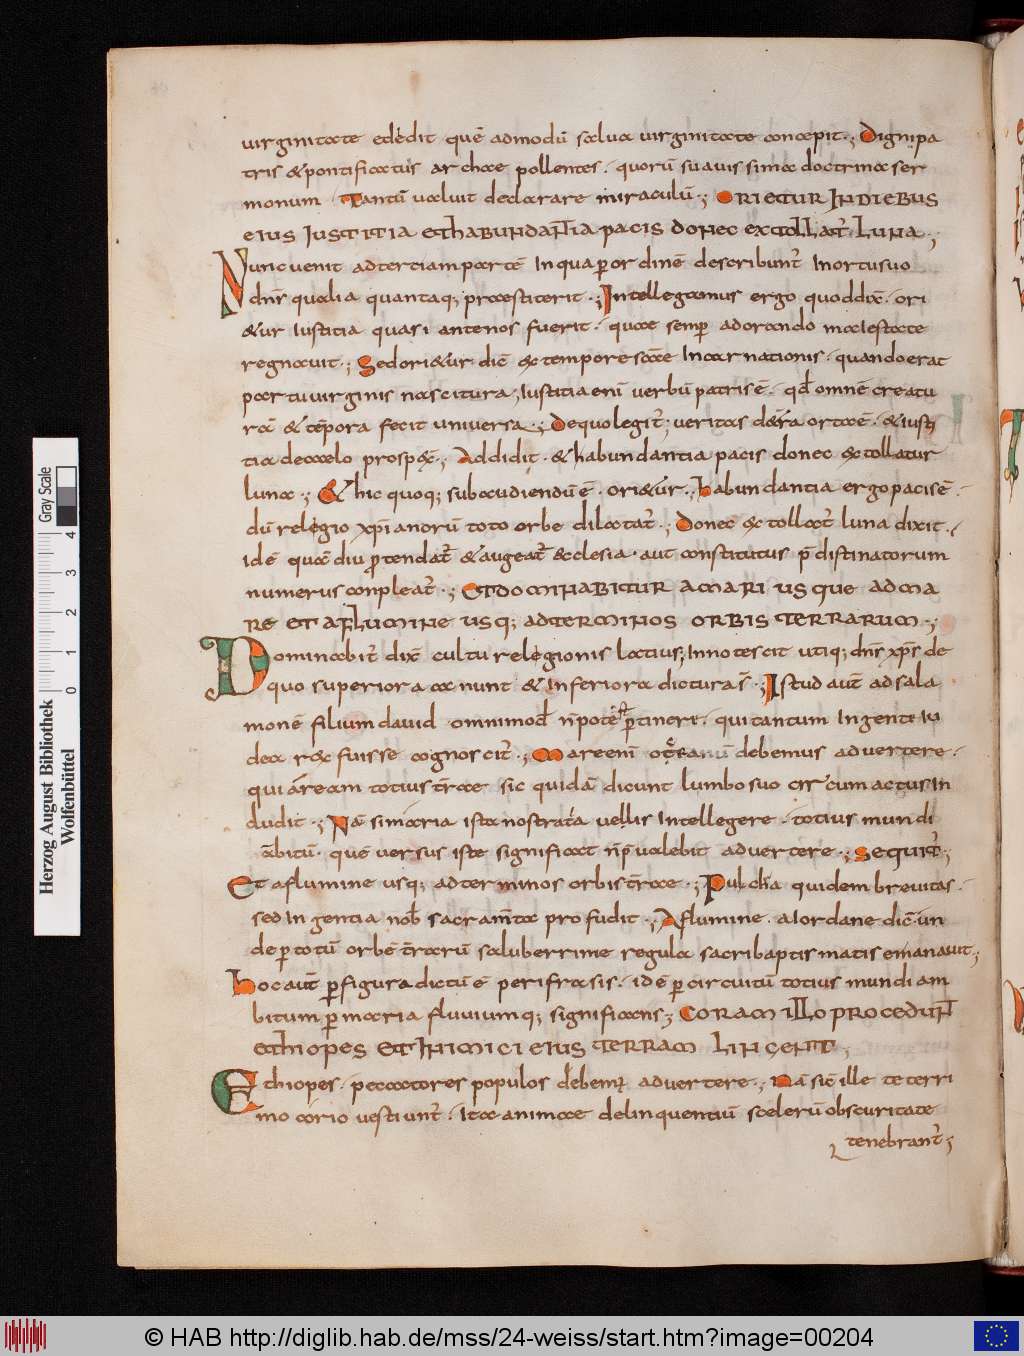 uirginitate edèdit quē admodū salua uirginitate concepit·; Digni pa
tris & pontificatus archae pollentes · quorū suauissimae doctrinae ser
monum · Tantū ualuit declarare miraculū·; ORIETUR IN DIEBUS
EIUS IUSTITIA ET HABUNDANTIA PACIS DONEC EXTOLLAT̄ LUNA·;
Nunc uenit ad tertiam partē In qua ꝑ ordinē describunt̄ In ortu suo
dn̄s qualia quantaq; praestiterit·; Intellegamus ergo quod dix̄· ori
&ur Iustitia quasi ante nos fuerit· quae semꝑ adorando maiestate
regnauit·; Sed ori&ur dic̄ & tempore sc̄ae Incarnationis· quando erat
partu uirginis nascitura; Iustitia enī uerbū patris ē· qd̄ omnē creatu
rā & tēpora fecit uniuersa·; De quo legit̄; ueritas de t̄ra orta ē· & iusti
tia de caelo prosp&̄·; Addidit· & habundantia pacis donec extollatur
luna·; & hic quoq; subaudiendū ē· ori&ur·; habundantia ergo pacis ē·
dū relegio xp̄ianorū toto orbe dilatat̄·; Donec extollat̄ luna dixit·
id ē quā diu ꝓtendat̄ & augeat̄ ecclesia· aut constitutus p̄distinatorum
numerus conpleat̄·; ET DOMINABITUR A MARI USQUE AD MA
RE ET A FLUMINE USQ; AD TERMINOS ORBIS TERRARUM·;
Dominabit̄ dix̄ cultu relegionis latius; Innotescit utiq; dn̄s xp̄s de
quo superiora canunt & Inferiora dictura s̄·; Istud aut̄ ad sala
monē filium dauid omnimod̄ n̄ potē ꝑtinere· qui tantum In gente iu
dea rex fuisse cognoscit̄·; Mare enī debemus aduertere·
qui āream totius t̄rae sic quidā dicunt lumbo suo circumactus In
cludit·; Nā si maria ista nostra uellis Intellegere· totius mundi
ābitū· quē uersus iste significat n̄ p̄ualebit aduertere·; Sequit̄;
Et a flumine usq; ad terminos orbis t̄rae·; Pulchra quidem breuitas·
sed Ingentia nob̄ sacram̄ta profudit·; A flumine· a Iordane dic̄· un
de ꝑ totū orbē t̄rarū saluberrime regula sacri baptismatis emanauit;
Hoc aut̄ ꝑ figura dictū ē perifrasis· id ē ꝑ circuitū totius mundi am
bitum ꝑ maria fluuiumq; significans; CORAM ILLO PROCEDUNT
ETHIOPES ET INIMICI EIUS TERRAM LINGENT;
Ethiopes· peccatores populos debem; aduertere·; Nā sic̄ ille teterri
mo corio uestiunt̄· Ita animae delinquentiū scelerū obscuritate
tenebrant̄;
Herzog August Bibliothek
Wolfenbüttel
0 1 2 3 4
Gray Scale
© HAB http://diglib.hab.de/mss/24-weiss/start.htm?image=00204